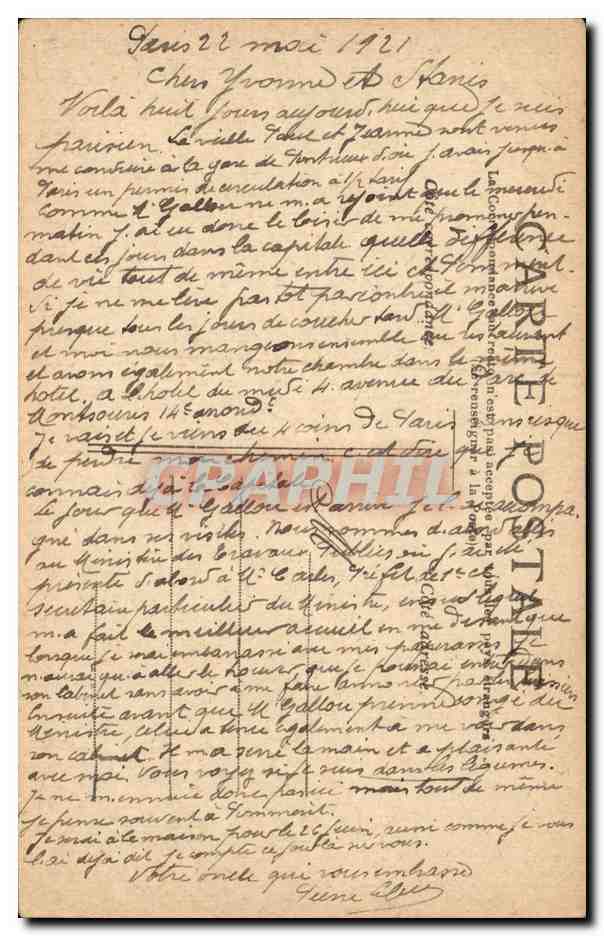 Paris 22 mai 1921
Chers Yvonne et Stanis
Voilà huit jours aujourd'hui que je suis
parisien. La vieille Paul et Jeanne sont venus
me conduire à la gare de Pontrieux d'ou j'avais jusqu'à
Paris un permis de circulation à 1/2 tarif
comme Mr Gallou ne m'a rejoint que le mercredi
matin j'ai eu donc le loisir de me promener pen-
dant ces jours dans la capitale quelle différence
de vie tout de même entre ici et Pommerit.
Si je ne me lève pas tot par contre il m'arrive
presque tous les jours de coucher tard Mr Gallou
et moi nous mangeons ensemble au restaurant
et avons également notre chambre dans le même
hotel, a l'hotel du midi 4 avenue du Parc de
Montsouris 14e arrondt
Je vais et je viens aux 4 coins de Paris sans risque
de perdre mon chemin c. a. d dire que je
connais déjà la capitale
Le jour que Mr Gallou est arrivé je l'ai accompa-
gné dans ses visites. Nous sommes d'abord allés
au Ministère des Travaux Publics ou j'ai été
présenté d'abord à Mr Carles, Préfet de 1e cl
secrétaire particulier du Ministre, en
m'a fait le meilleur accueil en me disant que
lorsque je serai embarrassé avec mes je
n'aurai qu'à aller le trouver que je pourrai entrer dans
son cabinet sans avoir à me faire annoncer par
Ensuite avant que Mr Gallou prenne congé du
Ministre, celui-ci a tenu également a me voir dans
son cabinet. Il m'a serré la main et a plaisanté
avec moi, Vous voyez si je suis dans les légumes.
Je ne m'ennuie donc pas ici mais tout de même
je pense souvent à Pommerit.
Je serai à la maison pour le 26 juin, aussi comme je vous
l'ai déjà dit je compte ce jour là sur vous.
Votre oncle qui vous embrasse
Pierre
CARTE POSTALE
La Correspondance au recto n'est pas acceptée par tous les pays étrangers
(Se renseigner à la Poste)
Côté correspondance
Côté adresse
CPAPHIL